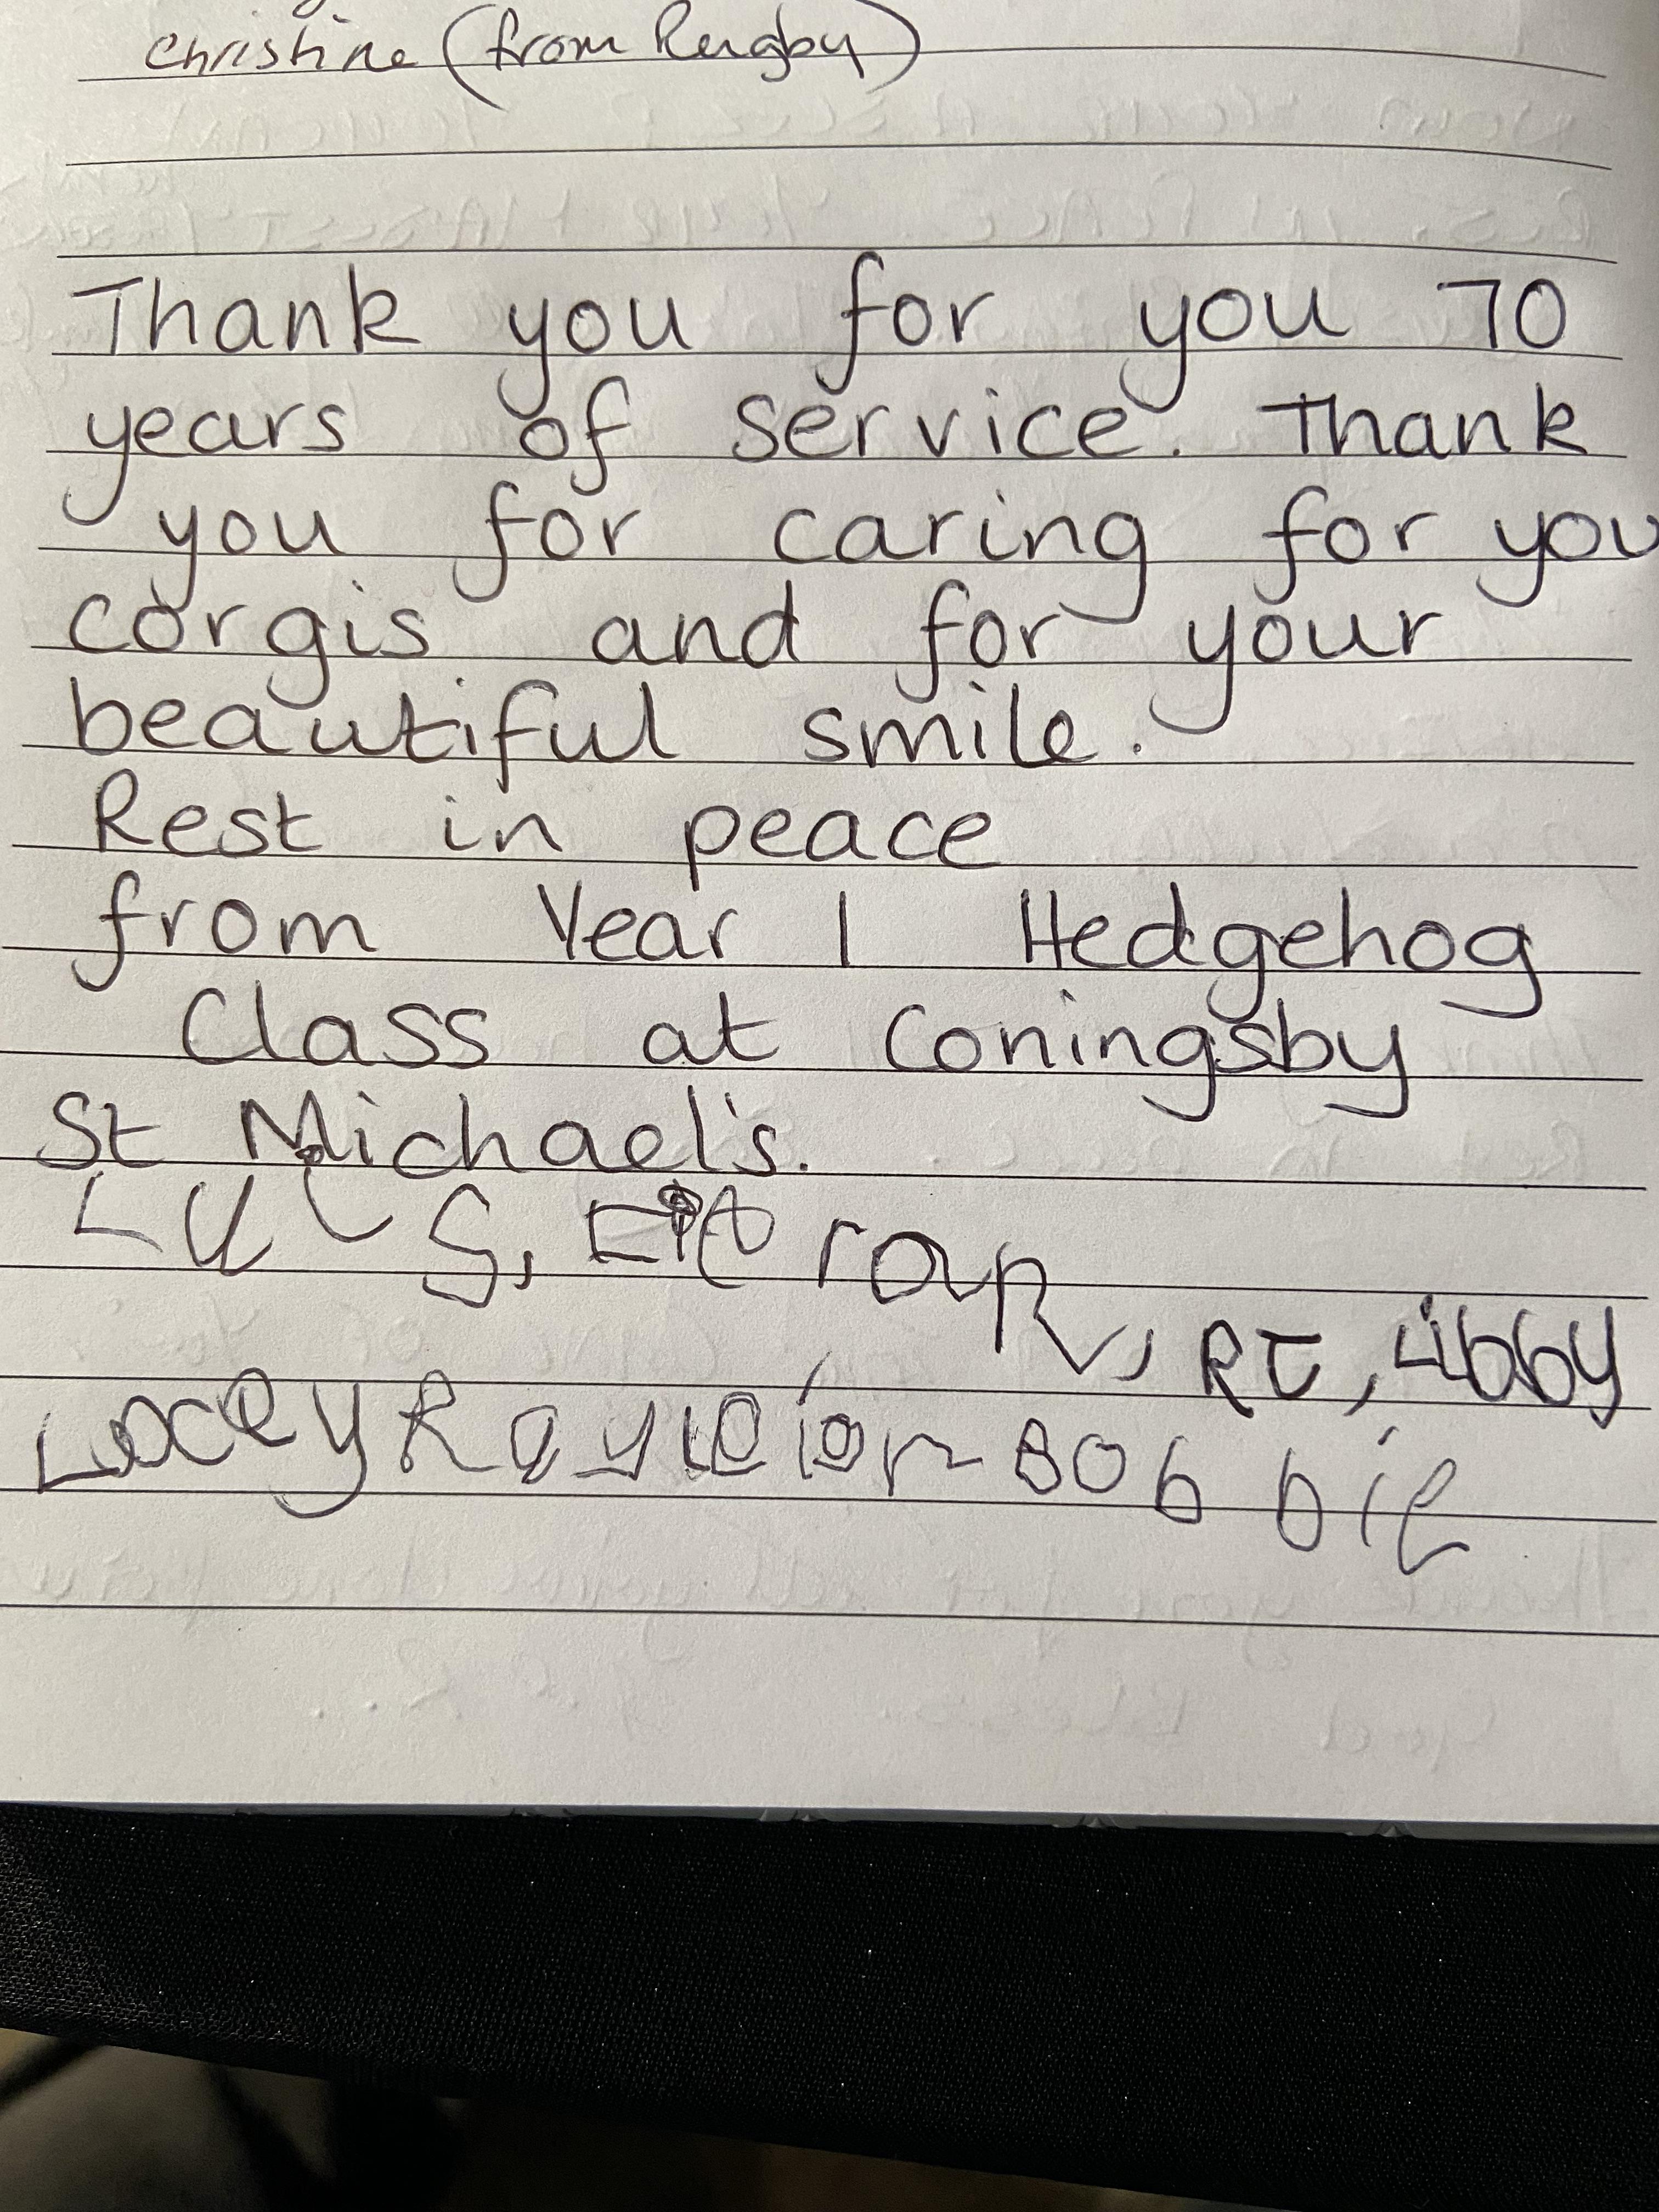 Christine (from Rugby)
Thank you for you 70
years of service. Thank
you for caring for you
corgis and for your
beautiful smile.
Rest in peace
from Year 1 Hedgehog
Class at Coningsby
St Michael's.
Libby
Lacey Bobbie